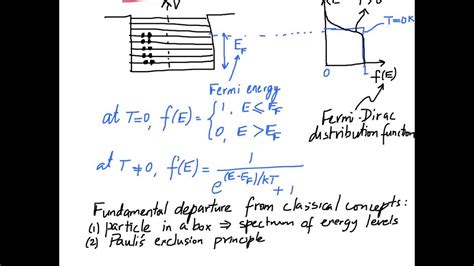 V
E T>0
T=0K
E_F
0 1 f(E)
Fermi energy
Fermi-Dirac
distribution function
at T=0, f(E) = { 1, E ≤ E_F
0, E > E_F
at T≠0, f(E) = 1 / (e^{(E-E_F)/kT} + 1)
Fundamental departure from classical concepts:
(1) particle in a box ⇒ spectrum of energy levels
(2) Pauli's exclusion principle